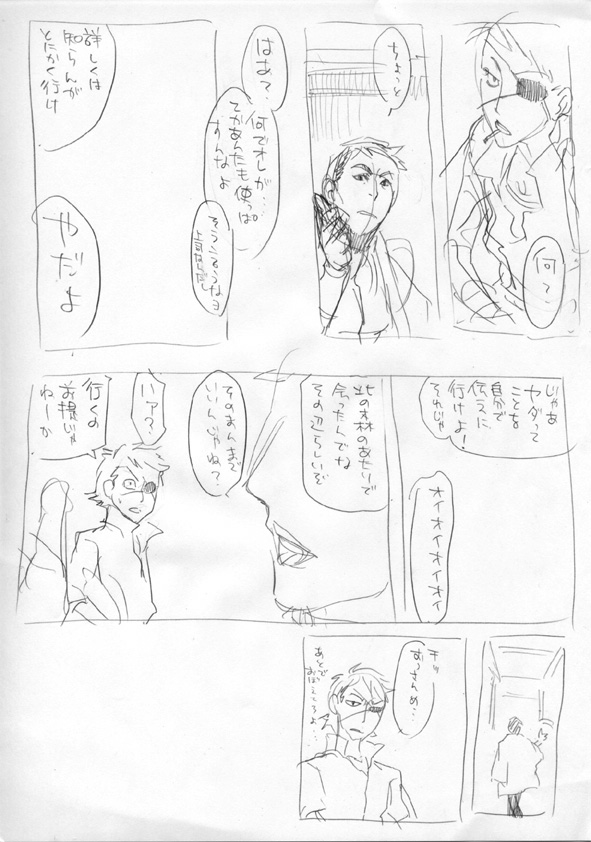 何？
ちょっと
はぁ？
何でオレが…
てかあんたも使っぱ
すんなよ
そうこうゆうなヨ
詳しくは
知らんが
とにかく行け
やだよ
じゃあ
ヤダって
ことを
自分で
伝えに
行けよ！
それじゃ
オイオイオイオイ
北の森のあたりで
会ったんでな
その辺らしいぞ
そのまんまで
いいんじゃね？
ハァ？
行くの
前提じゃ
ねーか
チッ
おっさんめ…
あとで
おぼえてろよ…